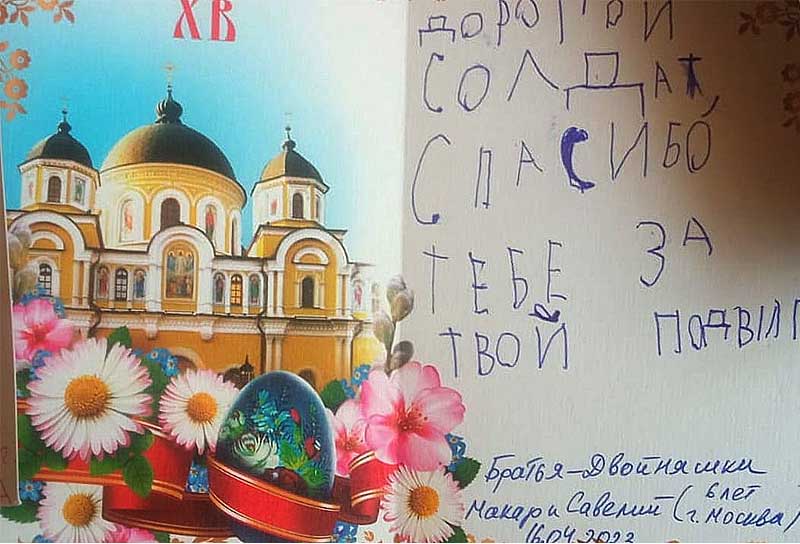 ХВ
ДОРОГОЙ
СОЛДАТ,
СПАСИБО
ТЕБЕ ЗА
ТВОЙ ПОДВИГ
Братья-Двойняшки
Макар и Савелий (6 лет
г. Москва)
16.04.2023